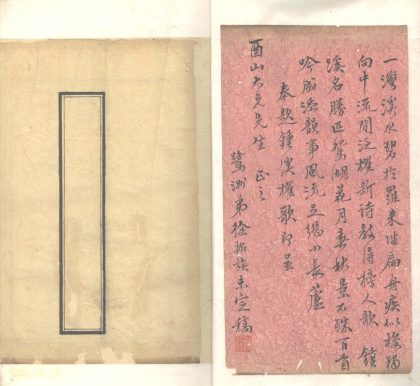 一灣溪水碧於羅來坐扁舟疾似梭獨
向中流閒泛櫂新詩教得榜人歌 鍾
溪名勝匹鴛湖花月春秋景不殊百首
吟成添韻事風流足繼小長蘆
奉題鍾溪櫂歌即呈
酉山大兄先生 正之
鷺洲弟徐未定稿